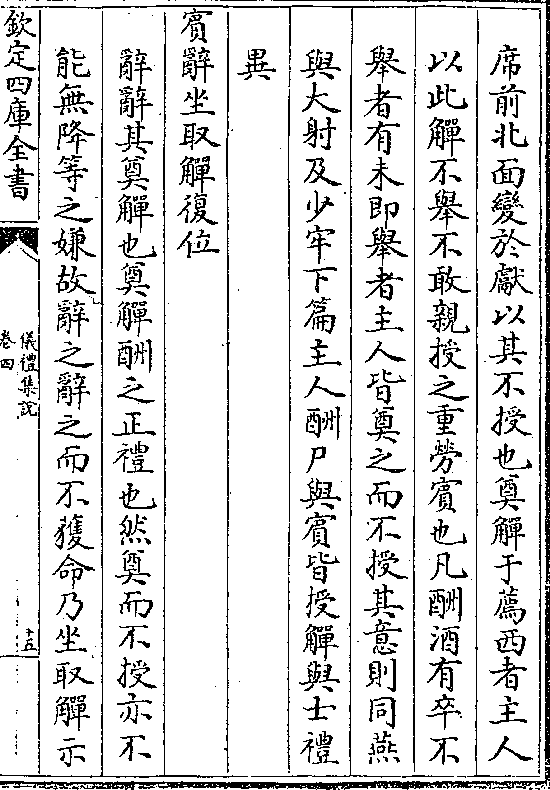 席前北面變於獻以其不授也奠觶于薦西者主人
以此觶不舉不敢親授之重勞賓也凡酬酒有卒不
舉者有未即舉者主人皆奠之而不授其意則同燕
與大射及少牢下篇主人酬尸與賓皆授觶與士禮
異
賓辭坐取觶復位
辭辭其奠觶也奠觶酬之正禮也然奠而不授亦不
能無降等之嫌故辭之辭之而不獲命乃坐取觶示
欽定四庫全書
儀禮集說
卷四
十五